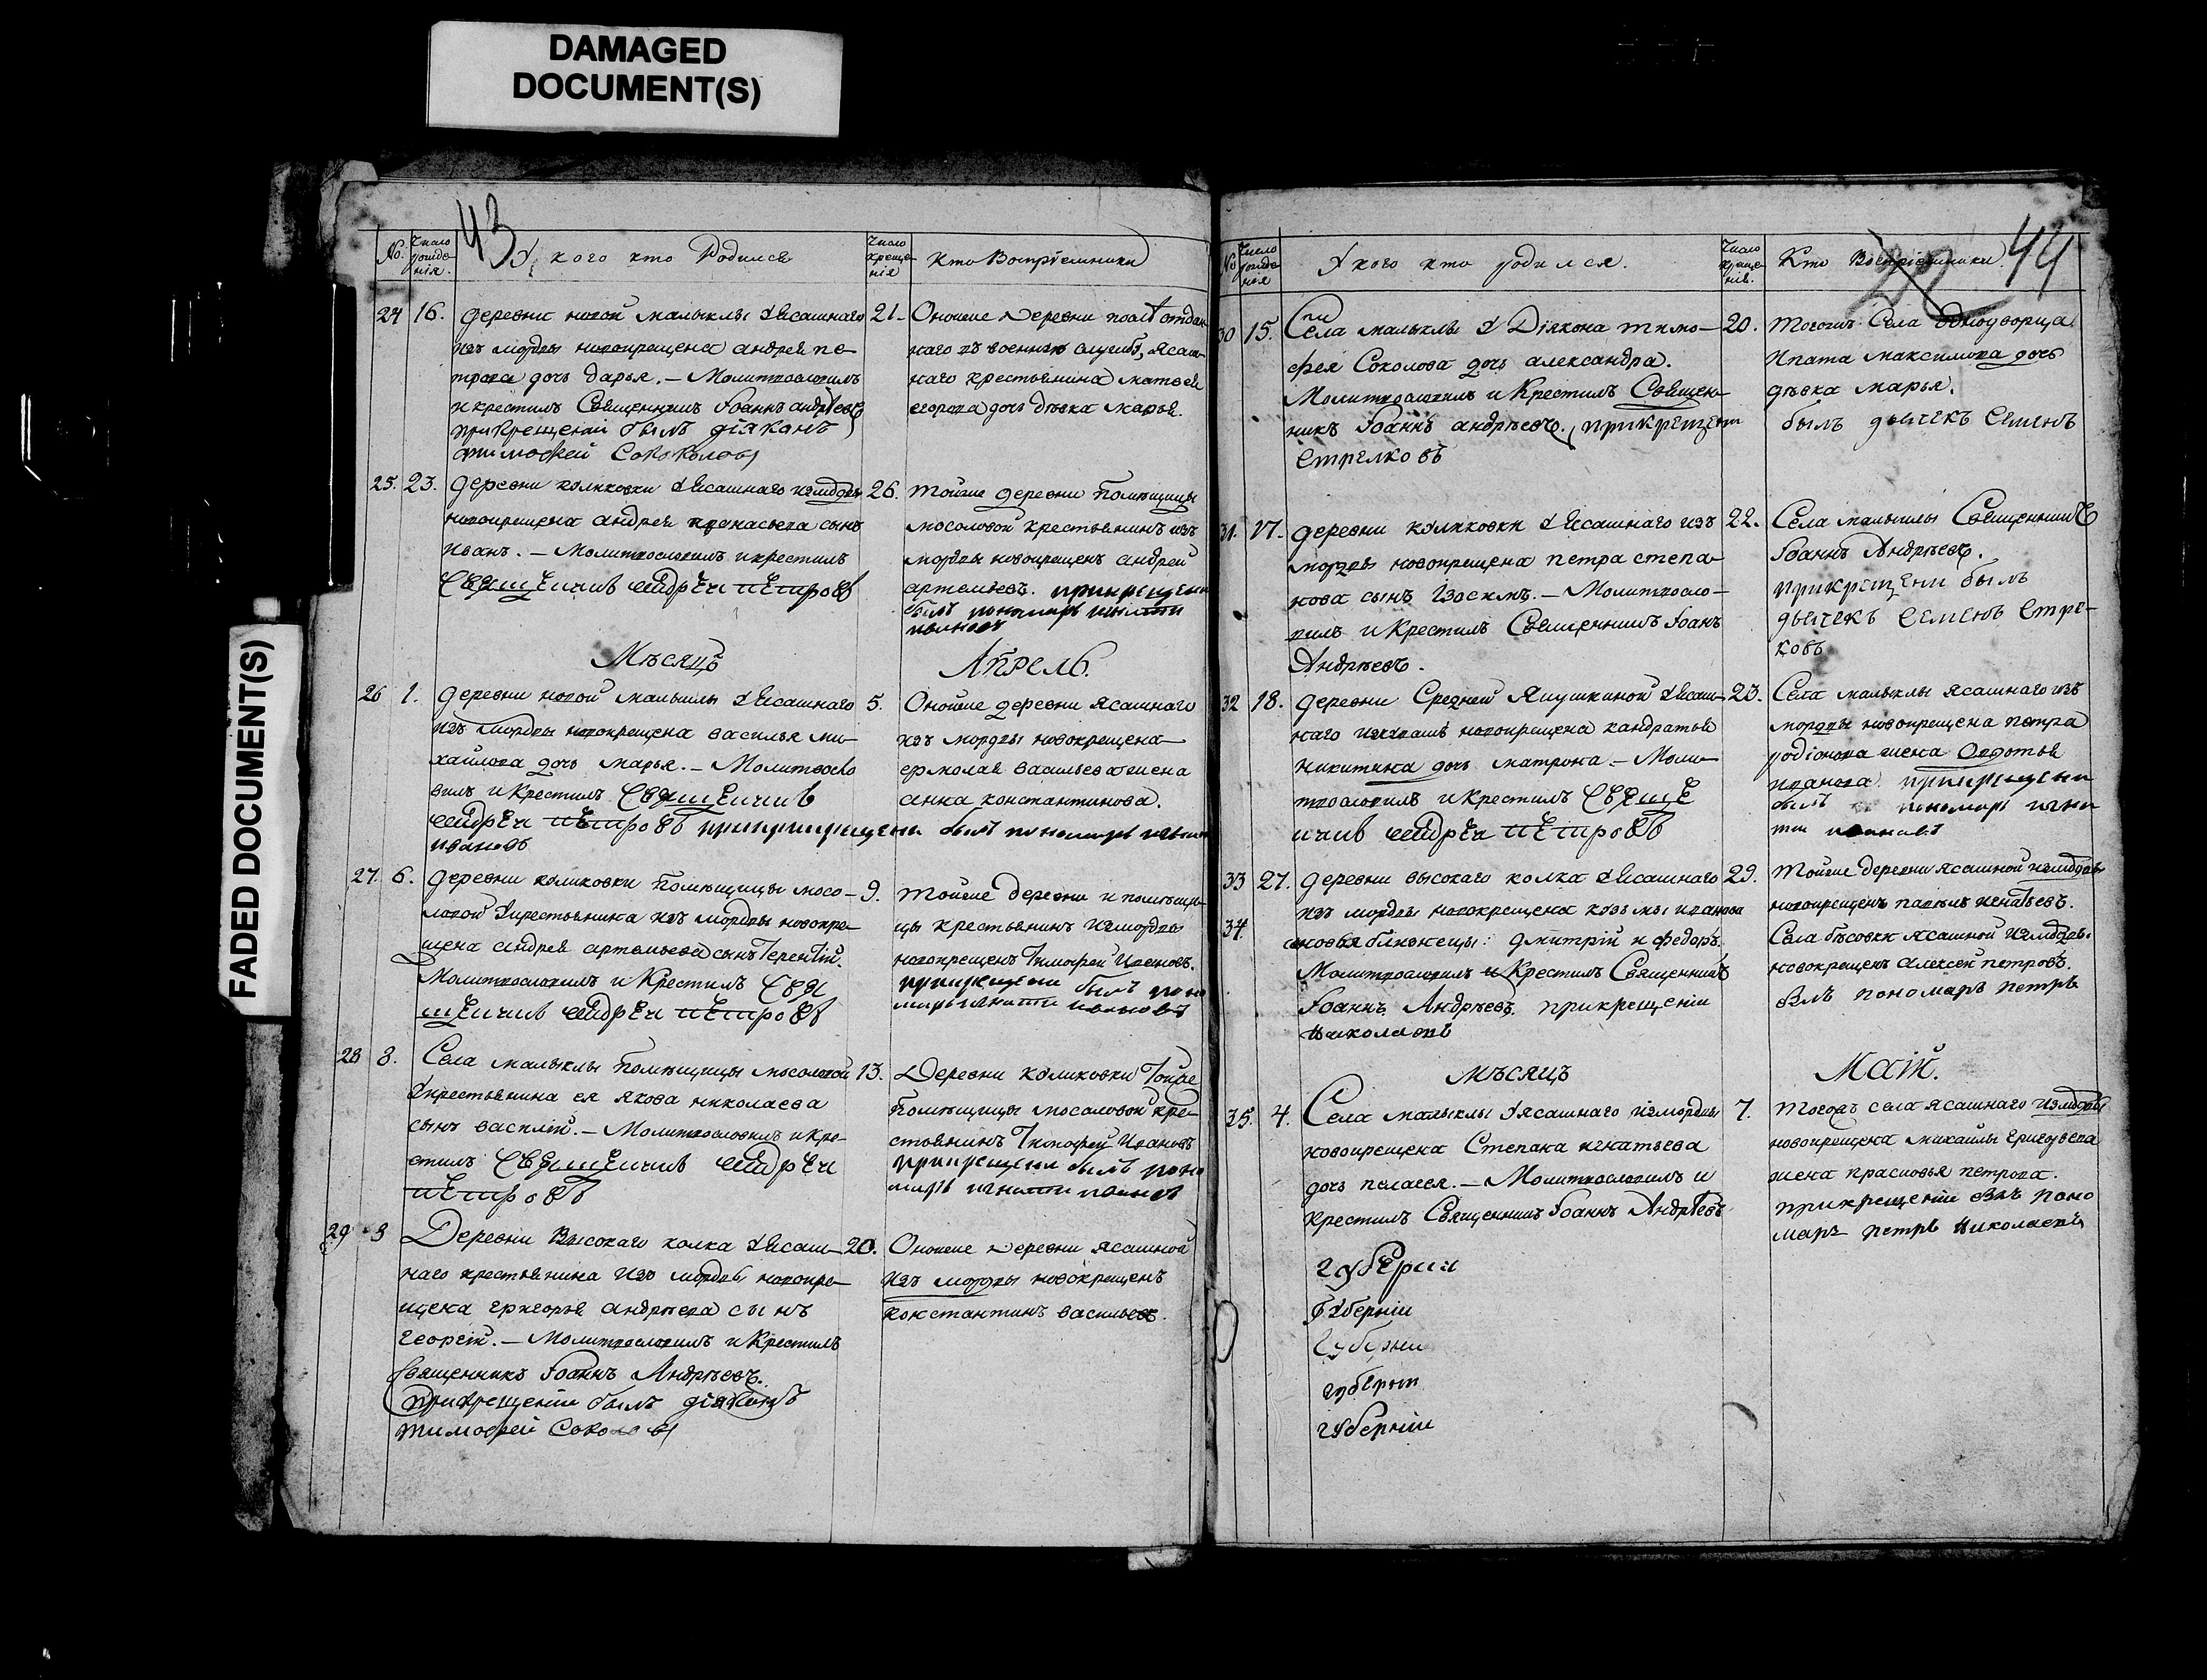 DAMAGED
DOCUMENT(S)
FADED DOCUMENT(S)
43
№ Число рожде-нія. У кого кто Родился Число креще-нія Кто Воспріемники
24 16. деревни новой малыклы У Ясашнаго
изъ мордвы новокрещена андрея пе-
трова дочь дарья. — Молитвословилъ
и крестилъ Священникъ Іоаннъ андрѣевъ
прикрещеніи былъ діяконъ
тимофей Соколовъ
21. Оной же деревни
наго въ военную службу, ясаш-
наго крестьянина матвея
егорова дочь дѣвка марья.
25. 23. деревни куликовки У Ясашнаго измордвы
новокрещена андрея афонасьева сынъ
Иванъ. — Молитвословилъ и крестилъ
Священникъ андреи петровъ
26. тойже деревни помѣщицы
мосоловой крестьянинъ изъ
мордвы новокрещенъ андрей
артемьевъ. прикрещени
былъ пономарь
ивановъ
Мѣсяцъ Апрель.
26 1. деревни новой малыклы У Ясашнаго
изъ мордвы новокрещена василья ми-
хайлова дочь марья. — Молитвосло
вилъ и крестилъ Священникъ
андреи петровъ прикрещени былъ пономарь
ивановъ
5. Онойже деревни ясашнаго
изъ мордвы новокрещена
ермолая васильева жена
анна константинова.
27. 6. деревни куликовки помѣщицы мосо-
ловой У крестьянина изъ мордвы новокре-
щена андрея артемьева сынъ Терентій.
Молитвословилъ и Крестилъ Свя
щенникъ андреи петровъ
9. тойже деревни и помѣщи-
цы крестьянинъ измордвы
новокрещенъ Тимофей Ивановъ.
прикрещени былъ поно
марь игнатіи ивановъ
28 8. Села малыклы помѣщицы мосоловой
У крестьянина ея якова николаева
сынъ василій. — Молитвословилъ и кре-
стилъ Священникъ андреи
петровъ
13. Деревни куликовки Тойже
помѣщицы мосоловой кре-
стьянинъ Тимофей Ивановъ
прикрещени былъ поно
марь игнатіи ивановъ
29 Деревни Высокаго колка У Ясаш-
наго крестьянина изъ мордвы новокре-
щена григорья андрѣева сынъ
георгій. — Молитвословилъ и Крестилъ
Священникъ Іоаннъ Андрѣевъ.
прикрещеніи былъ діяконъ
тимофей Соколовъ
20. Оной же Деревни ясашной
изъ мордвы новокрещенъ
константинъ васильевъ.
44
№ Число рожде-нія У кого кто родился. Число креще-нія. Кто Воспріемники.
30 15. Села малыклы У Діякона тимо-
фея Соколова дочь александра.
Молитвословилъ и Крестилъ Священ-
никъ Іоаннъ андрѣевъ. прикрещени
Стрелковъ
20. тогожъ Села однодворца
Ипата максимова дочь
дѣвка марья.
былъ дьячекъ Семенъ
31. 17. деревни куликовки У Ясашнаго изъ
мордвы новокрещена петра степа-
нова сынъ Іосимъ. — Молитвосло-
вилъ и Крестилъ Священникъ Іоанъ
Андрѣевъ.
22. Села малыклы Священникъ
Іоаннъ Андрѣевъ.
прикрещени былъ
дьячекъ Семенъ Стре-
ковъ
32 18. деревни Средней Якушкиной У Ясаш-
наго изчювашъ новокрещена кандратья
никитина дочь матрона. — Моли-
твословилъ и Крестилъ Священ
никъ андреи петровъ
23. Села малыклы ясашнаго изъ
мордвы новокрещена петра
родіонова жена Овдотья
иванова. прикрещени
былъ пономарь игна
тіи ивановъ
33 27. деревни высокаго колка У Ясашнаго
изъ мордвы новокрещена козьмы иванова
34. сыновья близнецы: дмитрій и федоръ.
Молитвословилъ и Крестилъ Священникъ
Іоаннъ Андрѣевъ. прикрещеніи
Николаевъ
29. Тойже деревни ясашной измордвы
новокрещенъ павелъ игнатьевъ.
Села бѣсовки ясашной измордвы.
новокрещенъ алексей петровъ.
былъ пономарь петръ
мѣсяцъ Маій.
35. 4. Села малыклы У ясашнаго измордвы
новокрещена Степана игнатьева
дочь пелагея. — Молитвословилъ и
крестилъ Священникъ Іоаннъ Андрѣевъ
7. тогожъ села ясашнаго измордвы
новокрещена михайлы григорьева
жена прасковья петрова.
прикрещеніи былъ поно
марь петръ Николаевъ
губерніи
Губерніи
Губерніи
губерніи
губерніи